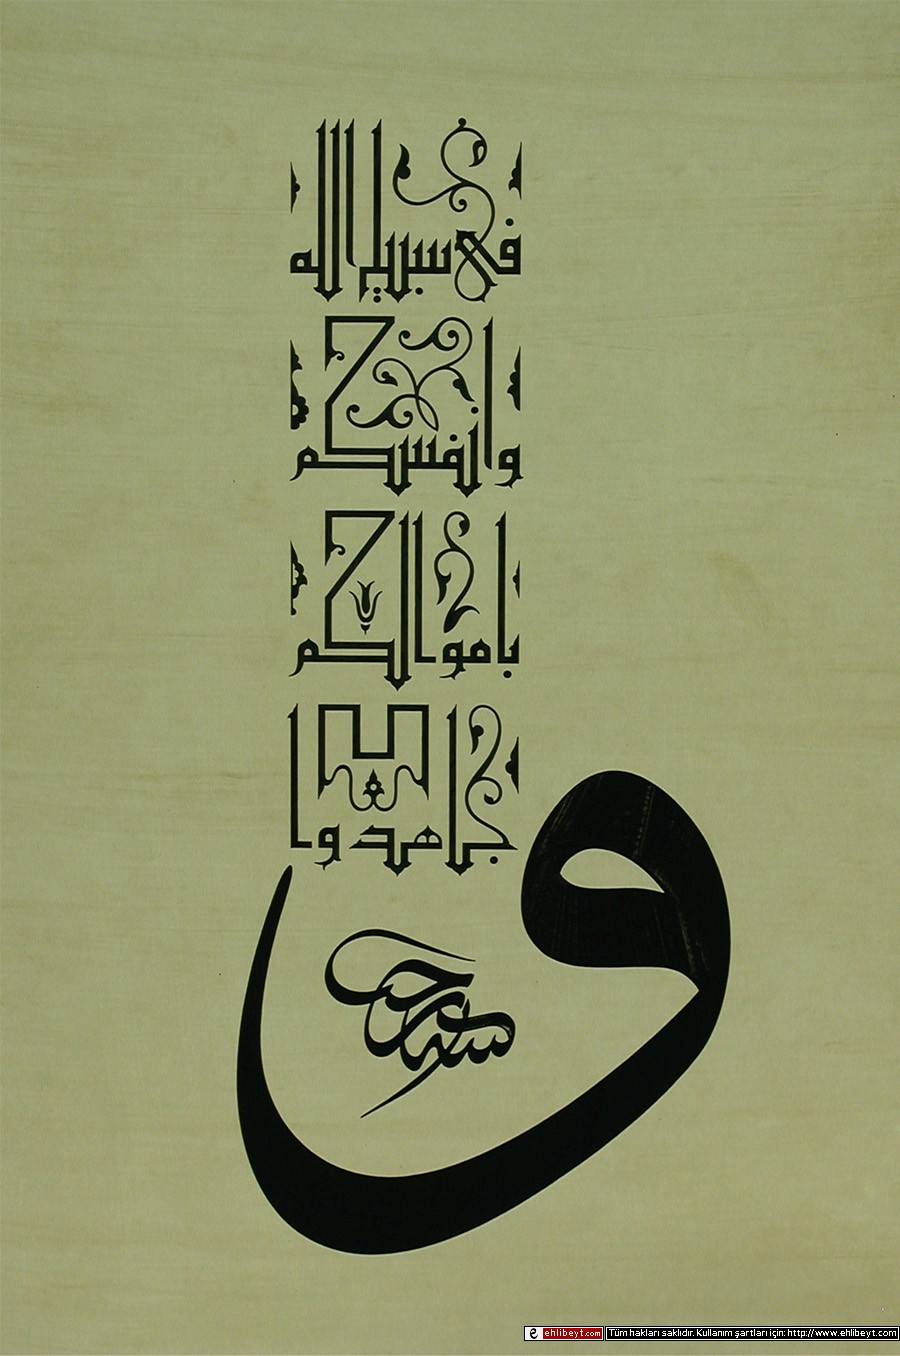 و
جاهدوا
باموالكم
وانفسكم
في سبيل الله
ehlibeyt.com Tüm hakları saklıdır. Kullanım şartları için: http://www.ehlibeyt.com